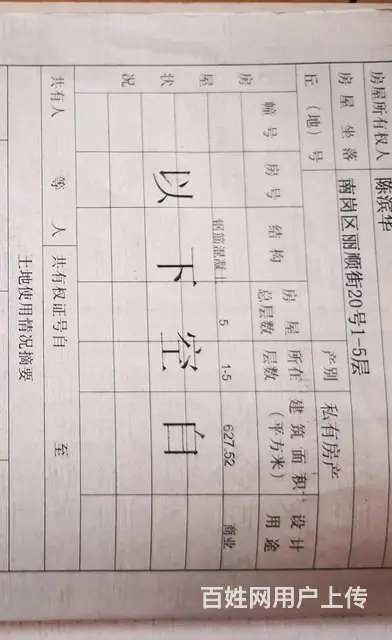 房屋所有权人 陈滨华
房屋坐落 南岗区丽顺街20号1-5层
丘(地)号 产别 私有房产
房屋状况 幢号 房号 结构 房屋总层数 所在层数 建筑面积(平方米) 设计用途
钢筋混凝土 5 1-5 627.52 商业
以下空白
共有人 等 人 共有权证号自 至
土地使用情况摘要
百姓网用户上传